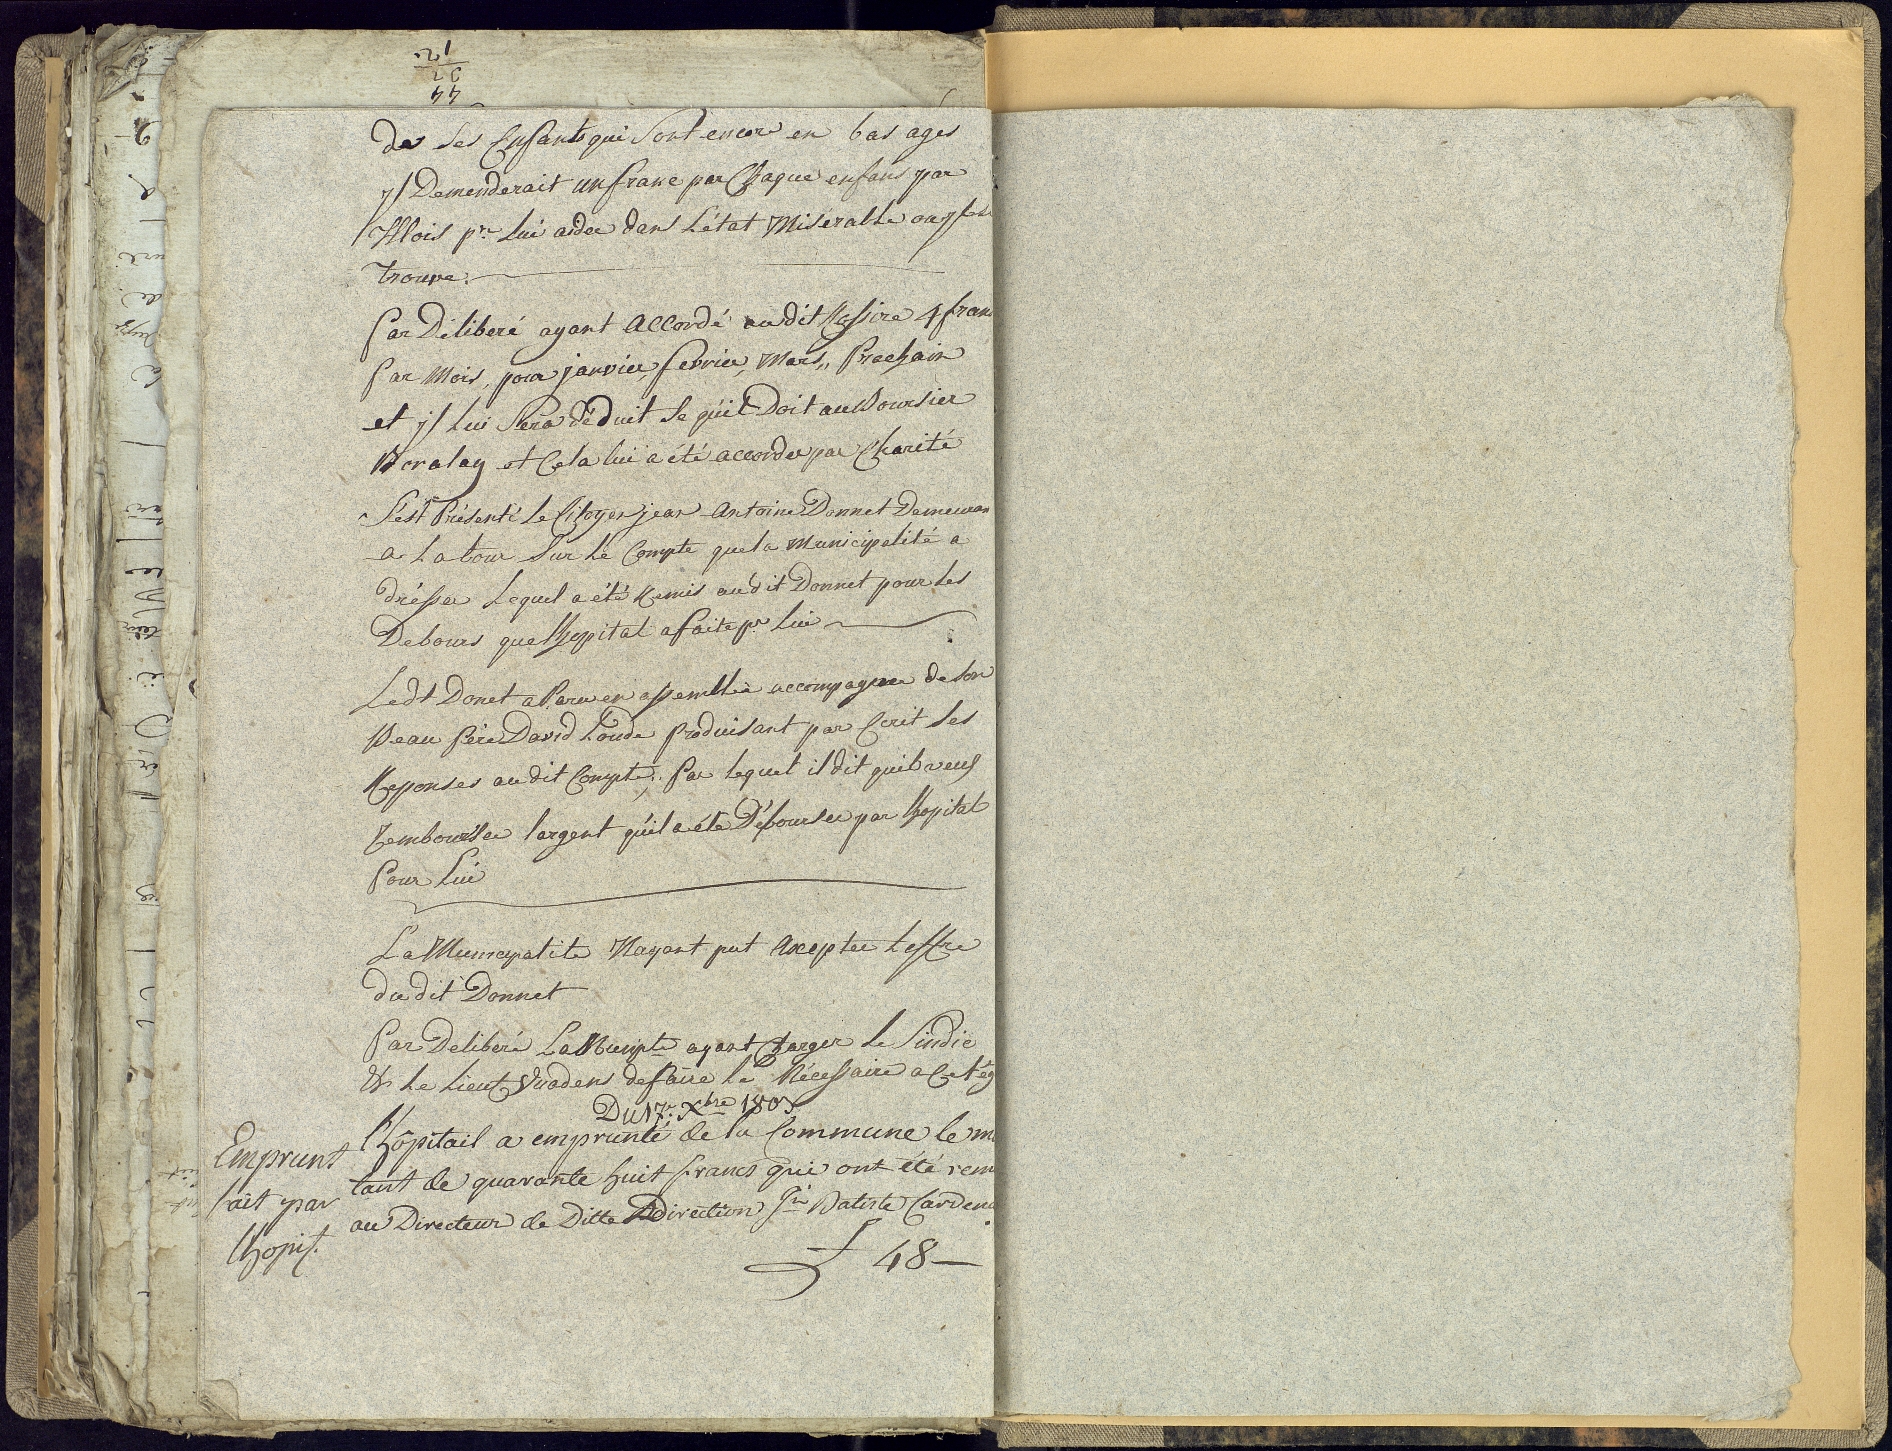 des ses Enfants qui Sont encor en bas ages
yl Demenderait un franc par Chaque enfans par
Mois pr. Lui aider dans L'état Misérable ou yl se
trouve.
Par Déliberé ayant accordé audit 4 fran
Par Mois, pour janvier, fevrier, Mars, Prochain
et yl Lui Sera déduit Se qu'il Doit au Boursier
et Cela lui a été accorder par Charité
S'est Présenté Le Citoyen jean Antoine Donnet Demeuran
a La tour Sur Le Compte que la Municipalité a
drésser Lequel a été Remis audit Donnet pour Les
Debours que Lhopital a faite pr Lui
Ledt Donet a Paru en assemblée accompagnée de Son
Beau Pére David Loude Produisant par Ecrit Ses
Reponses audit Compte. Par lequel il dit quil veus
Rembourser largent qu'il a été Débourser par Lhopital
Pour Lui
La Municipalite Nayant put Axepter Loffre
du dit Donnet
Par Deliberé La Munpte ayant Charger le Sindic
& Le Lieut Vuadens de faire Le Nécessaire a Cet ég
Du 17. Xbre 180
l'hôpitail a emprunté de la Commune le m
tant de quarante huit francs qui ont été rem
au Directeur de Ditte Direction Jn Batiste Carden
f 48 —
Emprunt
fait par
lhopit.
44
37
12